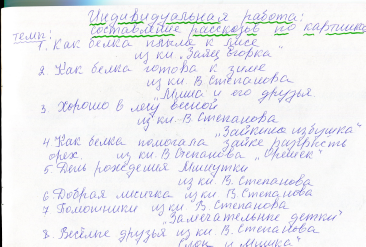 Индивидуальная работа:
темы: составление рассказов по картинке
1. Как белка пошла к лисе
из кн. „Заяц Егорка"
2. Как белка готова к зиме
из кн. В. Степанова
„Миша и его друзья
3. Хорошо в лесу весной
из кн. В. Степанова
„Зайкина избушка"
4. Как белка помогала зайке разгрызть
орех. из кн. В. Степанова „Орешек"
5. День рождения Мишутки
из кн. В. Степанова
6. Добрая лисичка из кн. В. Степанова
7. Помощники из кн. В. Степанова
„Замечательные детки"
8. Весёлые друзья из кн. В. Степанова
„Слон и Мишка"